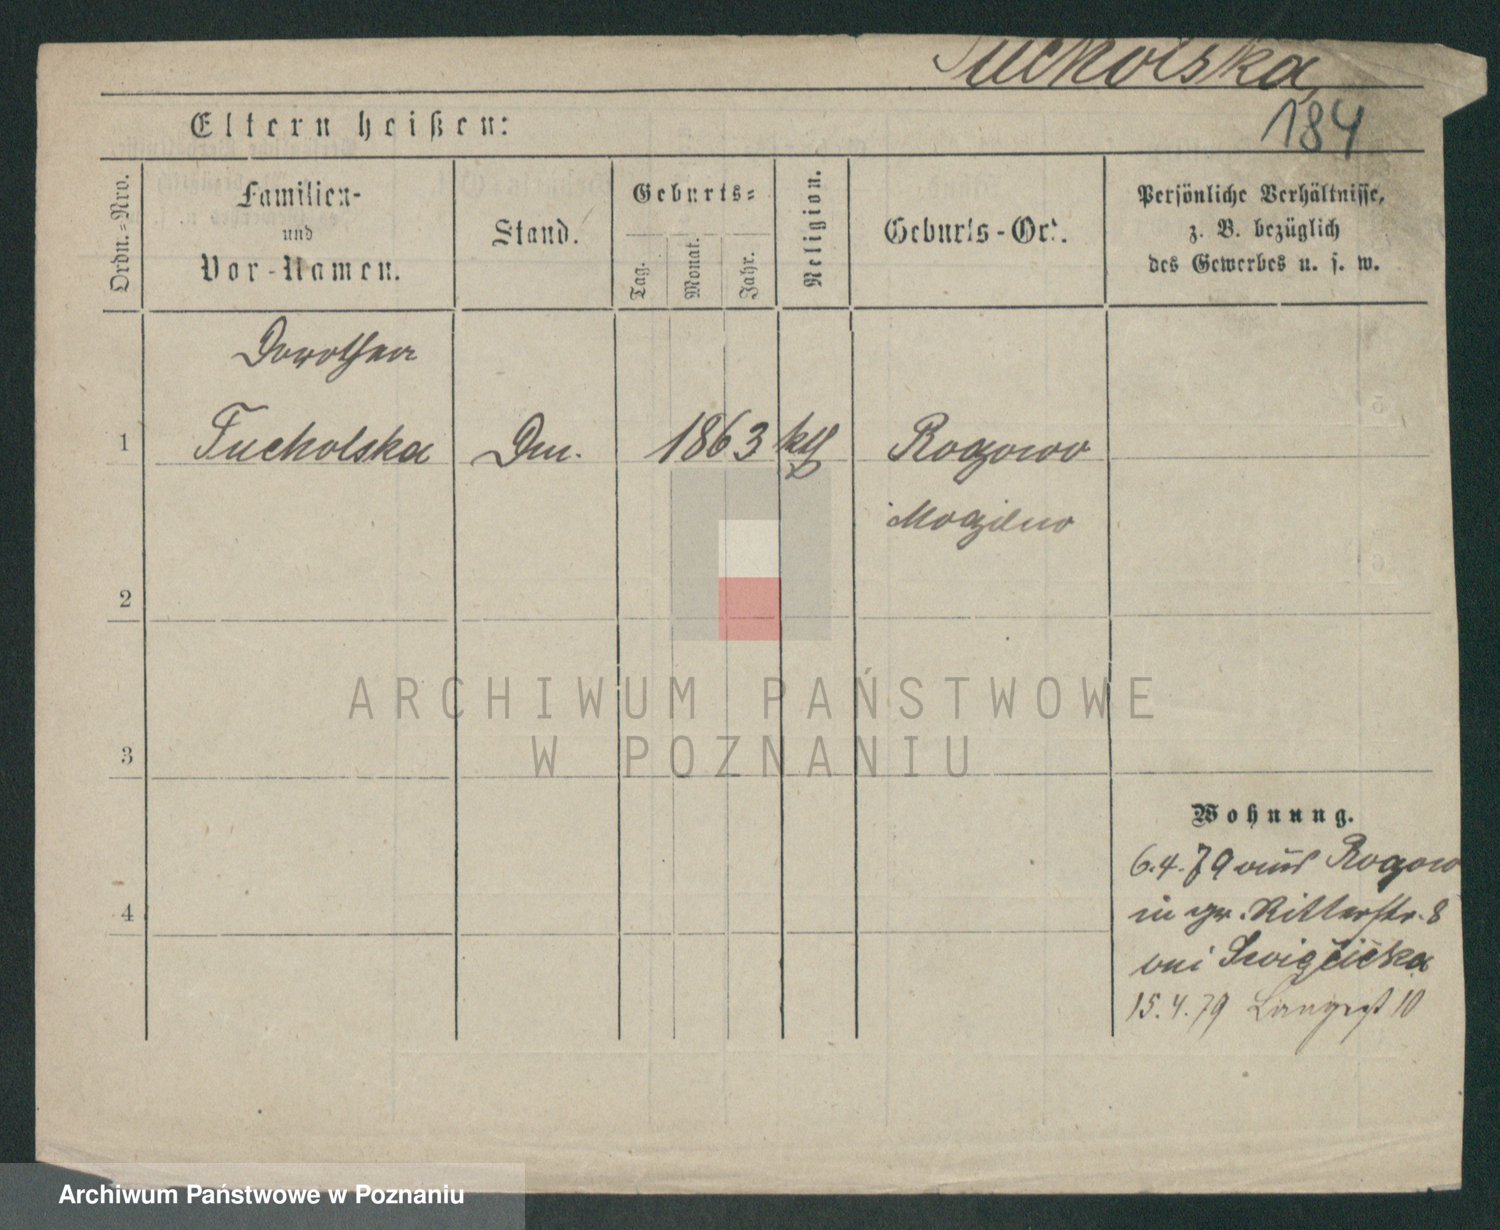 Tucholska
184
Eltern heißen:
Ordn.=Nro.
Familien-
und
Vor-Namen.
Stand.
Geburts=
Tag.
Monat.
Jahr.
Religion.
Geburts-Ort.
Persönliche Verhältnisse,
z. B. bezüglich
des Gewerbes u. s. w.
Dorothea
1 Tucholska Dm. 1863 kth Rogowo
Mogilno
2
3
4
Wohnung.
6.4.79 aus Rogowo
in gr. Ritterstr. 8
bei
15.4.79 Langest 10
ARCHIWUM PAŃSTWOWE
W POZNANIU
Archiwum Państwowe w Poznaniu